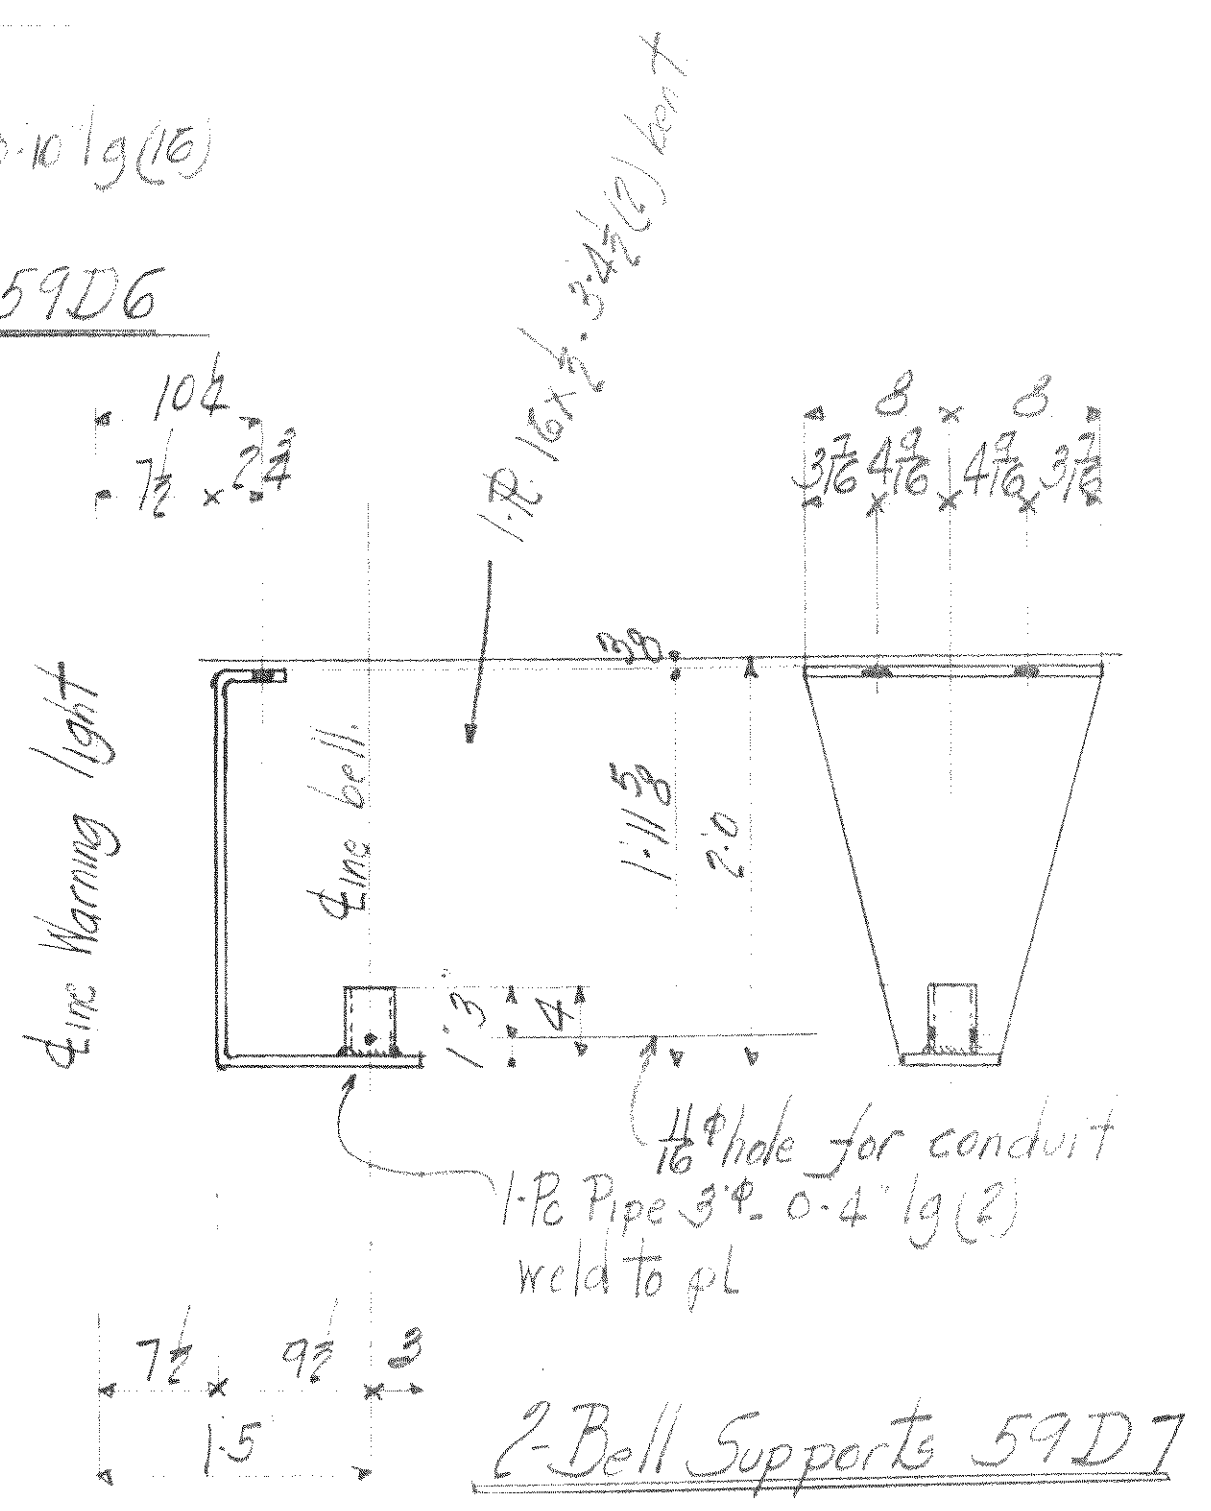 0·10" lg (16)
59D6
10¼
7½ 2¾
1·PL 16 x ½ · 3'·4½ (2) bent
8 8
3 7/16 4 9/16 4 9/16 3 7/16
3/8
℄ine Warning light
℄ine bell.
1'·11 5/8
2'·0
4
11/16 φ hole for conduit
1·Pc Pipe 3"φ - 0·4" lg (2)
weld to pL
7½ 9½ 3
1·5
2-Bell Supports 59D7